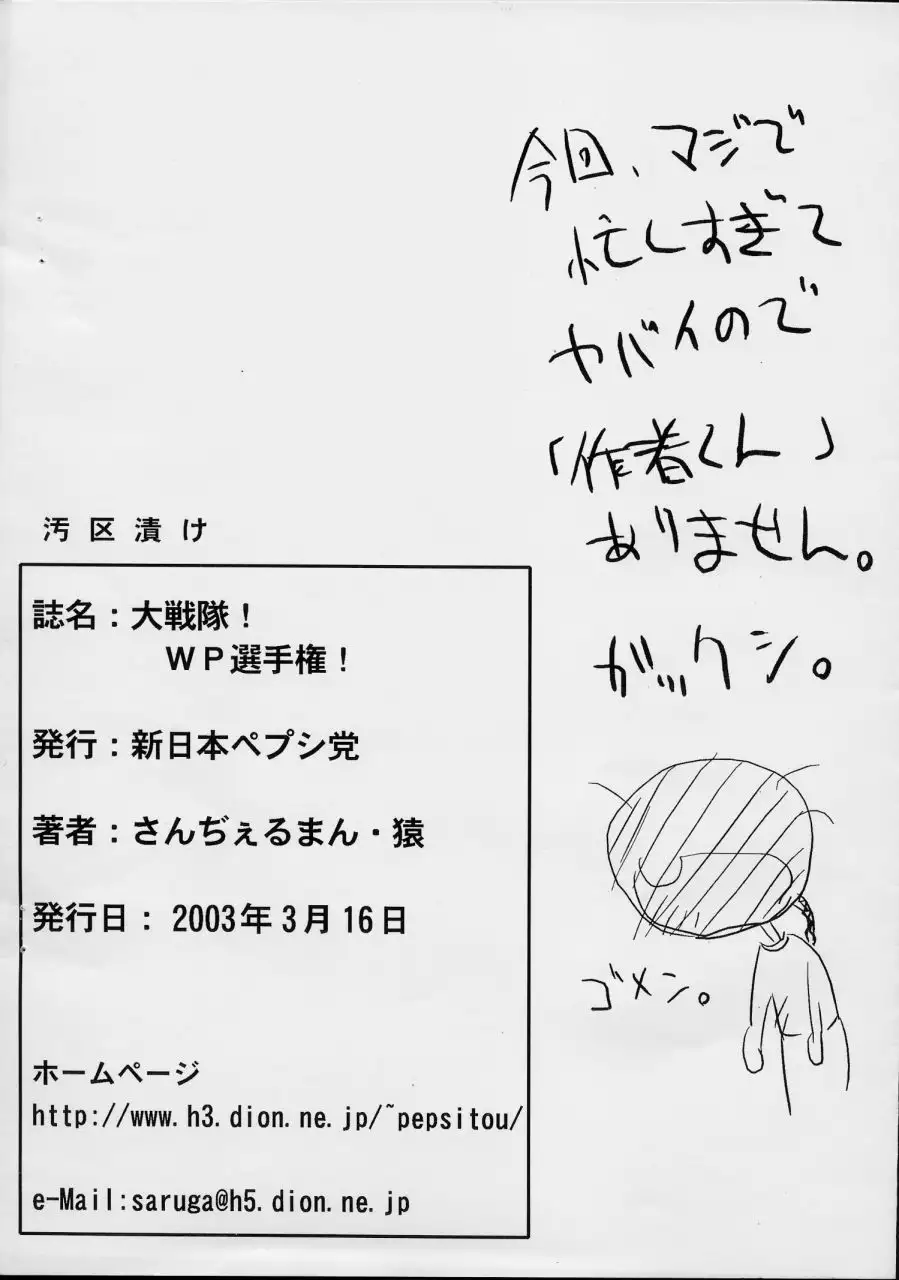 今回、マジで
忙しすぎて
ヤバイので
「作者くん」
ありません。
ガックシ。
ゴメン。
汚区漬け
誌名：大戦隊！
ＷＰ選手権！
発行：新日本ペプシ党
著者：さんぢぇるまん・猿
発行日： 2003年3月16日
ホームページ
http://www.h3.dion.ne.jp/~pepsitou/
e-Mail:saruga@h5.dion.ne.jp